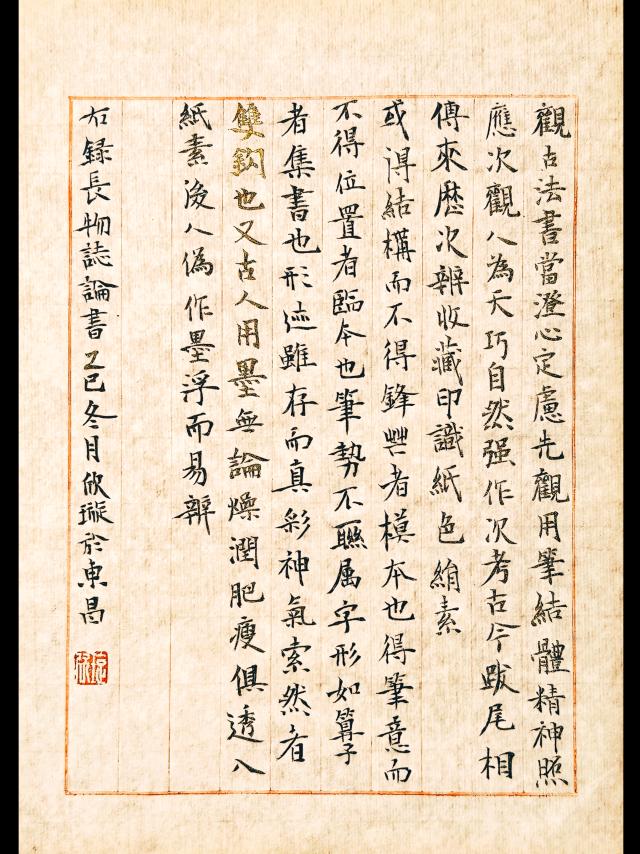 觀古法書當澄心定慮先觀用筆結體精神照
應次觀人為天巧自然强作次考古今跋尾相
傳來歷次辨收藏印識紙色絹素
或得結構而不得鋒鋩者模本也得筆意而
不得位置者臨本也筆勢不聯属字形如算子
者集書也形迹雖存而真彩神氣索然者
雙鈎也又古人用墨無論燥潤肥瘦俱透入
紙素後人偽作墨浮而易辨
右録長物誌論書乙巳冬月欣璇於東昌